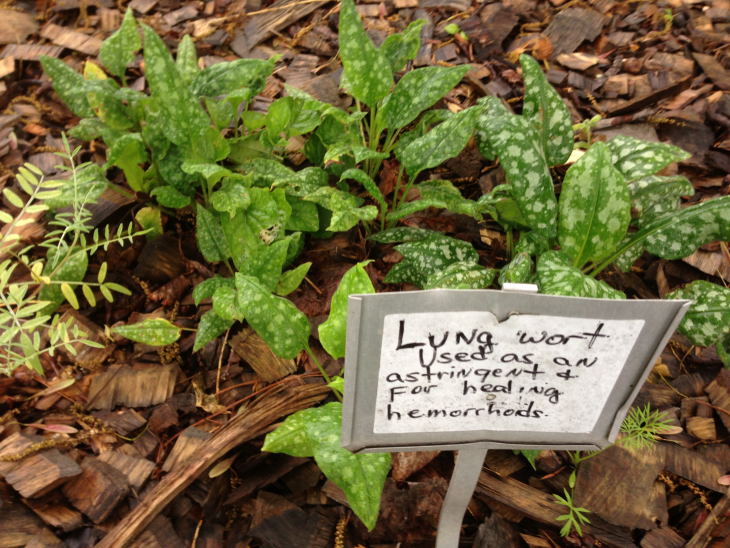 Lung wort
Used as an
astringent &
For healing
hemorrhoids.